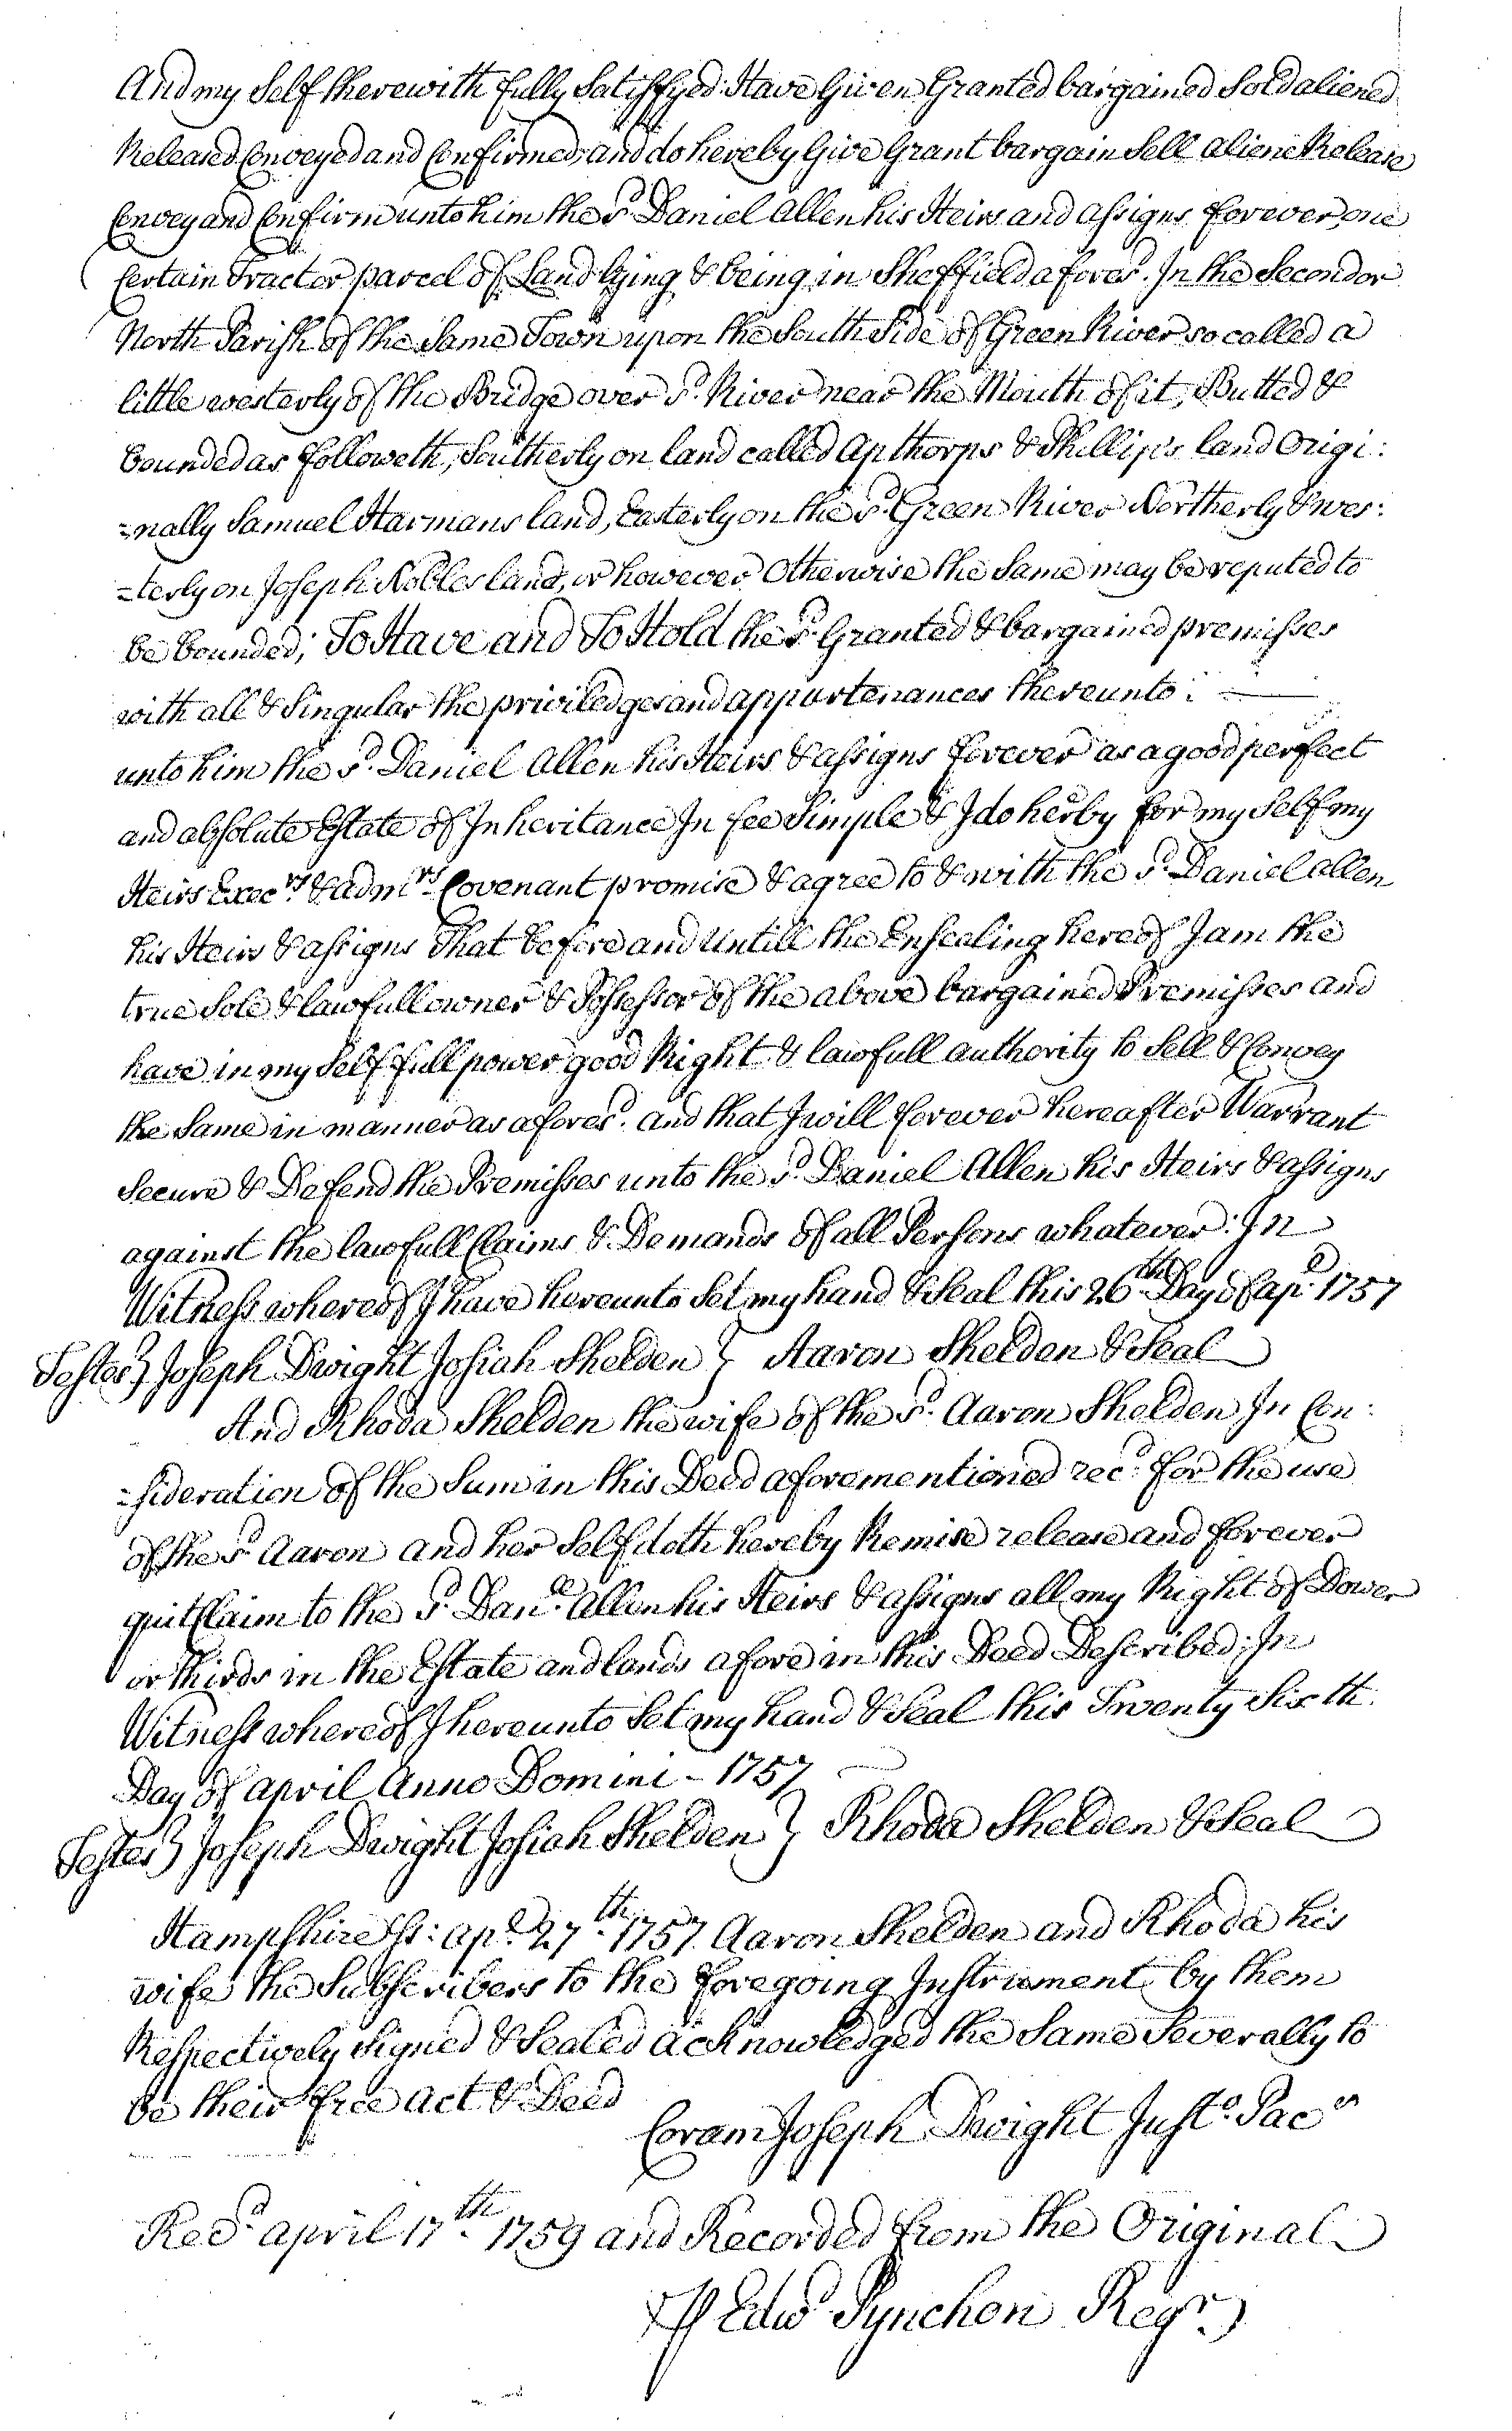 And my Self therewith fully Satisfyed: Have Given Granted bargained Sold aliened
Released Conveyed and Confirmed, and do hereby Give Grant bargain Sell aliene Release
Convey and Confirm unto him the sd. Daniel Allen his Heirs and assigns forever, one
Certain Tract or parcel of Land lying & being in Sheffield aforesd. In the Second or
North Parish of the Same Town upon the South Side of Green River so called a
little westerly of the Bridge over sd. River near the Mouth of it, Butted &
bounded as followeth, Southerly on land called Apthorps & Phillips's land Origi:
=nally Samuel Harmans land, Easterly on the sd. Green River Northerly & wes:
=terly on Joseph Nobles land, or however Otherwise the Same may be reputed to
be bounded; To Have and To Hold the sd. Granted & bargained premisses
with all & Singular the priviledges and appurtenances thereunto:
unto him the sd. Daniel Allen his Heirs & assigns forever as a good perfect
and absolute Estate of Inheritance In fee Simple & I do herby for my Self my
Heirs Execrs. & admrs. Covenant promise & agree to & with the sd. Daniel Allen
his Heirs & assigns That before and Untill the Ensealing hereof I am the
true Sole & lawfull owner & Possessor of the above bargained Premisses and
have in my Self full power good Right & lawfull authority to Sell & Convey
the Same in manner as aforesd. and that I will forever hereafter Warrant
Secure & Defend the Premisses unto the sd. Daniel Allen his Heirs & assigns
against the lawfull Claims & Demands of all Persons whatever: In
Witness whereof I have hereunto Set my hand & Seal this 26th. Day of apl. 1757
Testes } Joseph Dwight Josiah Shelden } Aaron Shelden & Seal
And Rhoda Shelden the wife of the sd. Aaron Shelden In Con:
=sideration of the Sum in this Deed aforementioned recd. for the use
of the sd. Aaron and her Self doth hereby Remise release and forever
quitClaim to the sd. Danl. Allen his Heirs & assigns all my Right of Dower
or thirds in the Estate and lands afore in this Deed Described; In
Witness whereof I hereunto Set my hand & Seal this Twenty Sixth
Day of april Anno Domini - 1757
Testes } Joseph Dwight Josiah Shelden } Rhoda Shelden & Seal
Hampshire Ss: apl. 27th. 1757. Aaron Shelden and Rhoda his
wife the Subscribers to the foregoing Instrument by them
Respectively Signed & Sealed acknowledged the Same Severally to
be their free act & Deed
Coram Joseph Dwight Justo. Pacs
Recd. april 17th. 1759 and Recorded from the Original
⅌ Edwd Pynchon Regr.